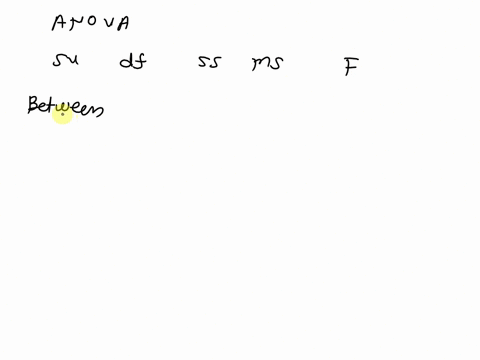 ANOVA
SU df SS MS F
Between